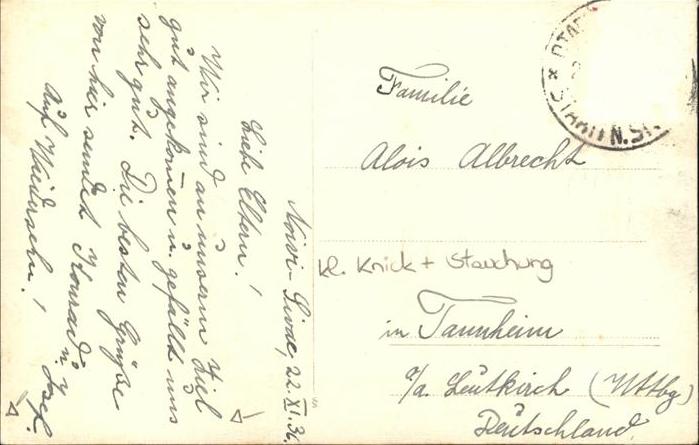 Novi-Sivac, 22.XI.36
Liebe Eltern!
Wir sind an unserm Ziel
gut angekomen u. gefällt uns
sehr gut. Die besten Grüße
von hier sendet Konrad u.
Josef.
Auf Wiedersehn!
Familie
Alois Albrecht
kl. Knick + Stauchung
in Tannheim
o/a. Leutkirch (Wttbg)
Deutschland.
STARI N.SI